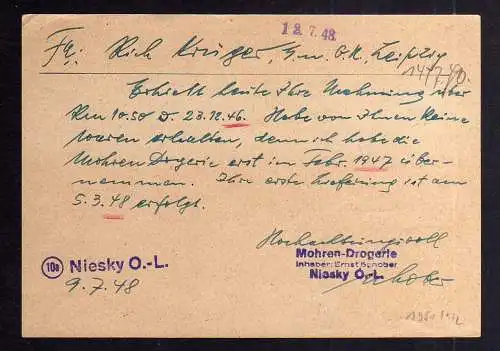 12.7.48
Fa: Rich Krüger, G.m.b.H., Leipzig
14/7 40.
Erhielt heute Ihre Mahnung über
Rm 10.50 v. 23.12.46. Habe von Ihnen keine
waren erhalten, denn ich habe die
Mohren Drogerie erst im Febr. 1947 über-
nommen. Ihre erste Lieferung ist am
5.3.48 erfolgt.
Hochachtungsvoll
Mohren-Drogerie
Inhaber: Ernst Schober
Niesky O.-L.
Schober
10a Niesky O.-L.
9.7.48